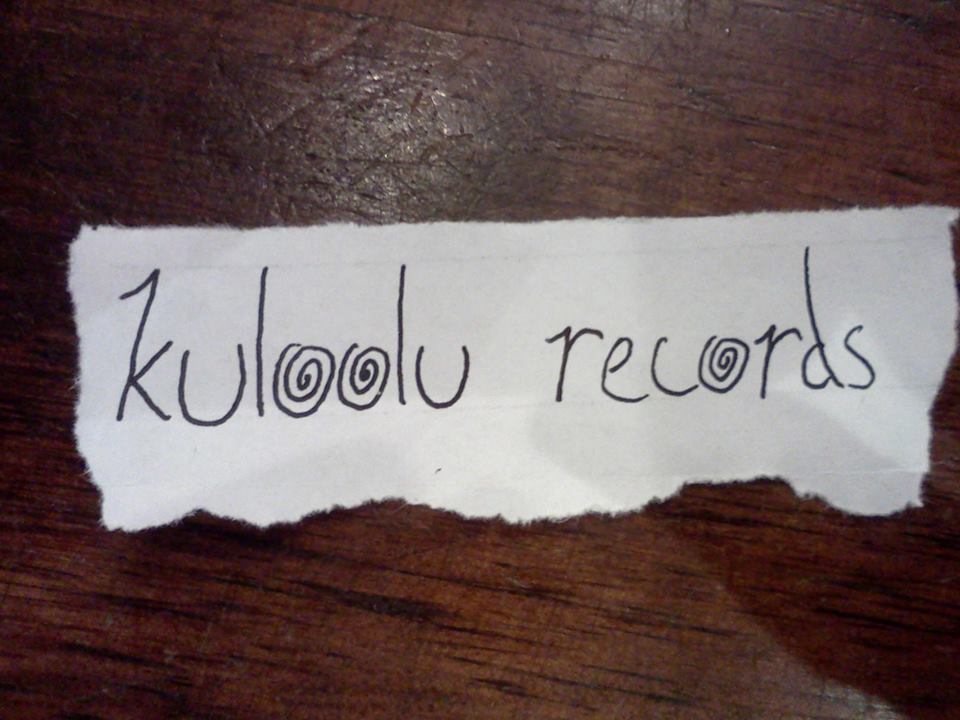 kuloolu records